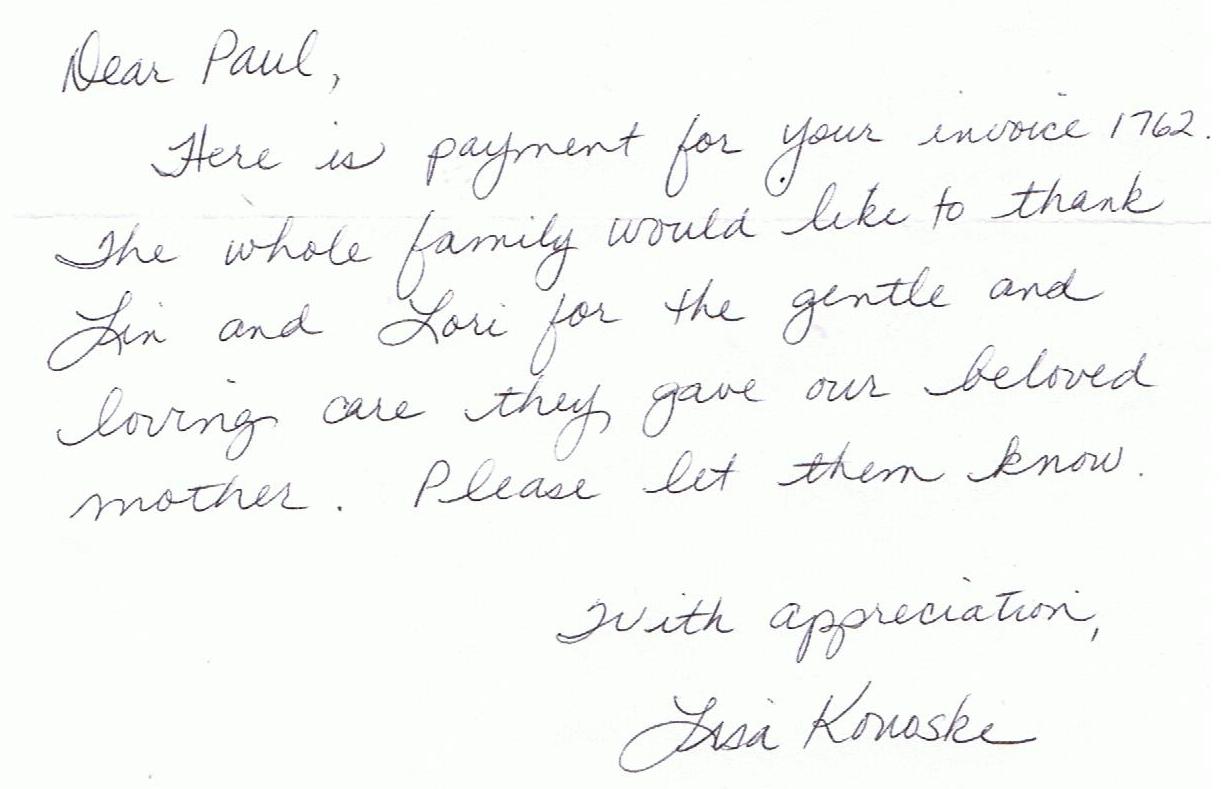 Dear Paul,
Here is payment for your invoice 1762.
The whole family would like to thank
Lin and Lori for the gentle and
loving care they gave our beloved
mother. Please let them know.
With appreciation,
Lisa Konoske